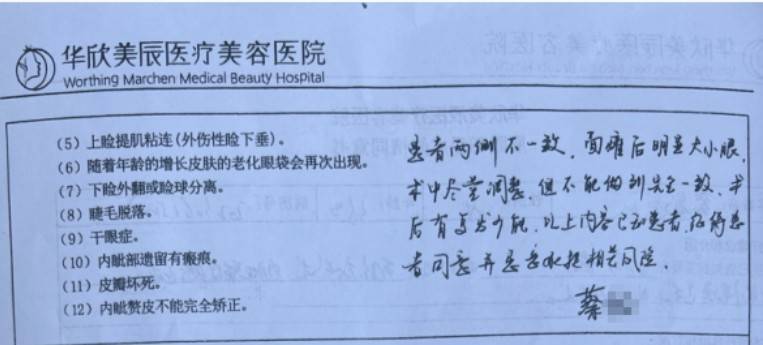 华欣美辰医疗美容医院
Worthing Marchen Medical Beauty Hospital
(5) 上睑提肌粘连(外伤性睑下垂)。
(6) 随着年龄的增长皮肤的老化眼袋会再次出现。
(7) 下睑外翻或睑球分离。
(8) 睫毛脱落。
(9) 干眼症。
(10) 内眦部遗留有瘢痕。
(11) 皮瓣坏死。
(12) 内眦赘皮不能完全矫正。
患者两侧不一致,面雕后明显大小眼,
术中尽量调整,但不能做到完全一致,术
后有复发可能,以上内容已告患者,征得患
者同意并患者承担相关风险。
蔡